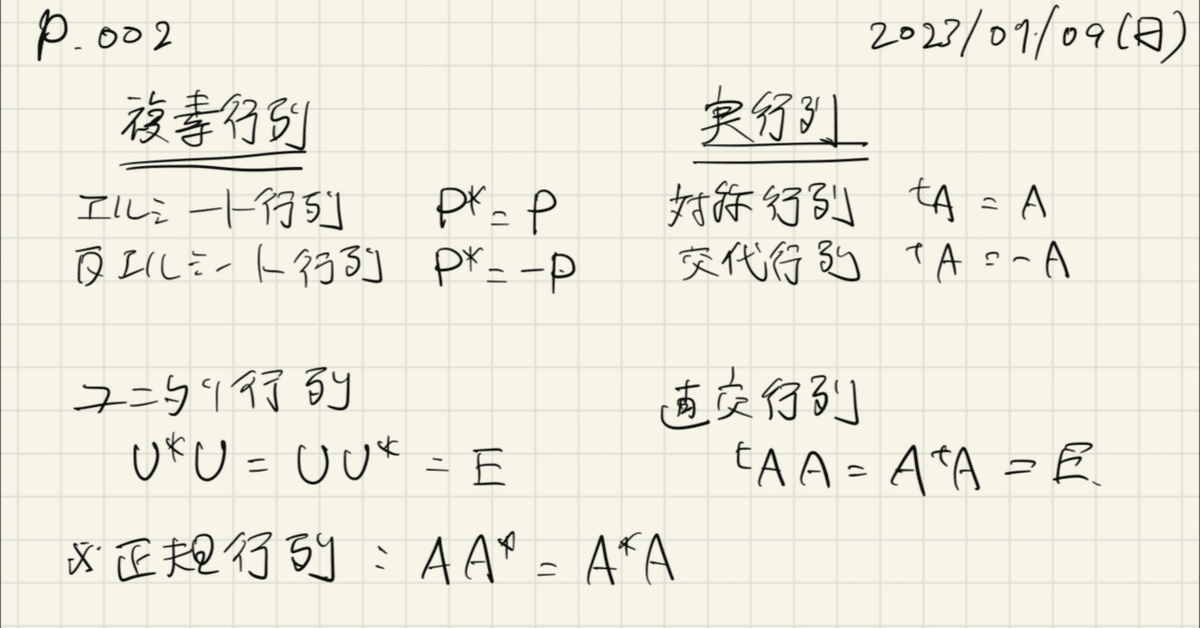 P.002 2023/07/09(日)
複素行列 実行列
エルミート行列 P* = P 対称行列 ᵗA = A
反エルミート行列 P* = -P 交代行列 ᵗA = -A
ユニタリ行列 直交行列
U*U = UU* = E ᵗAA = AᵗA = E.
※正規行列 : AA* = A*A